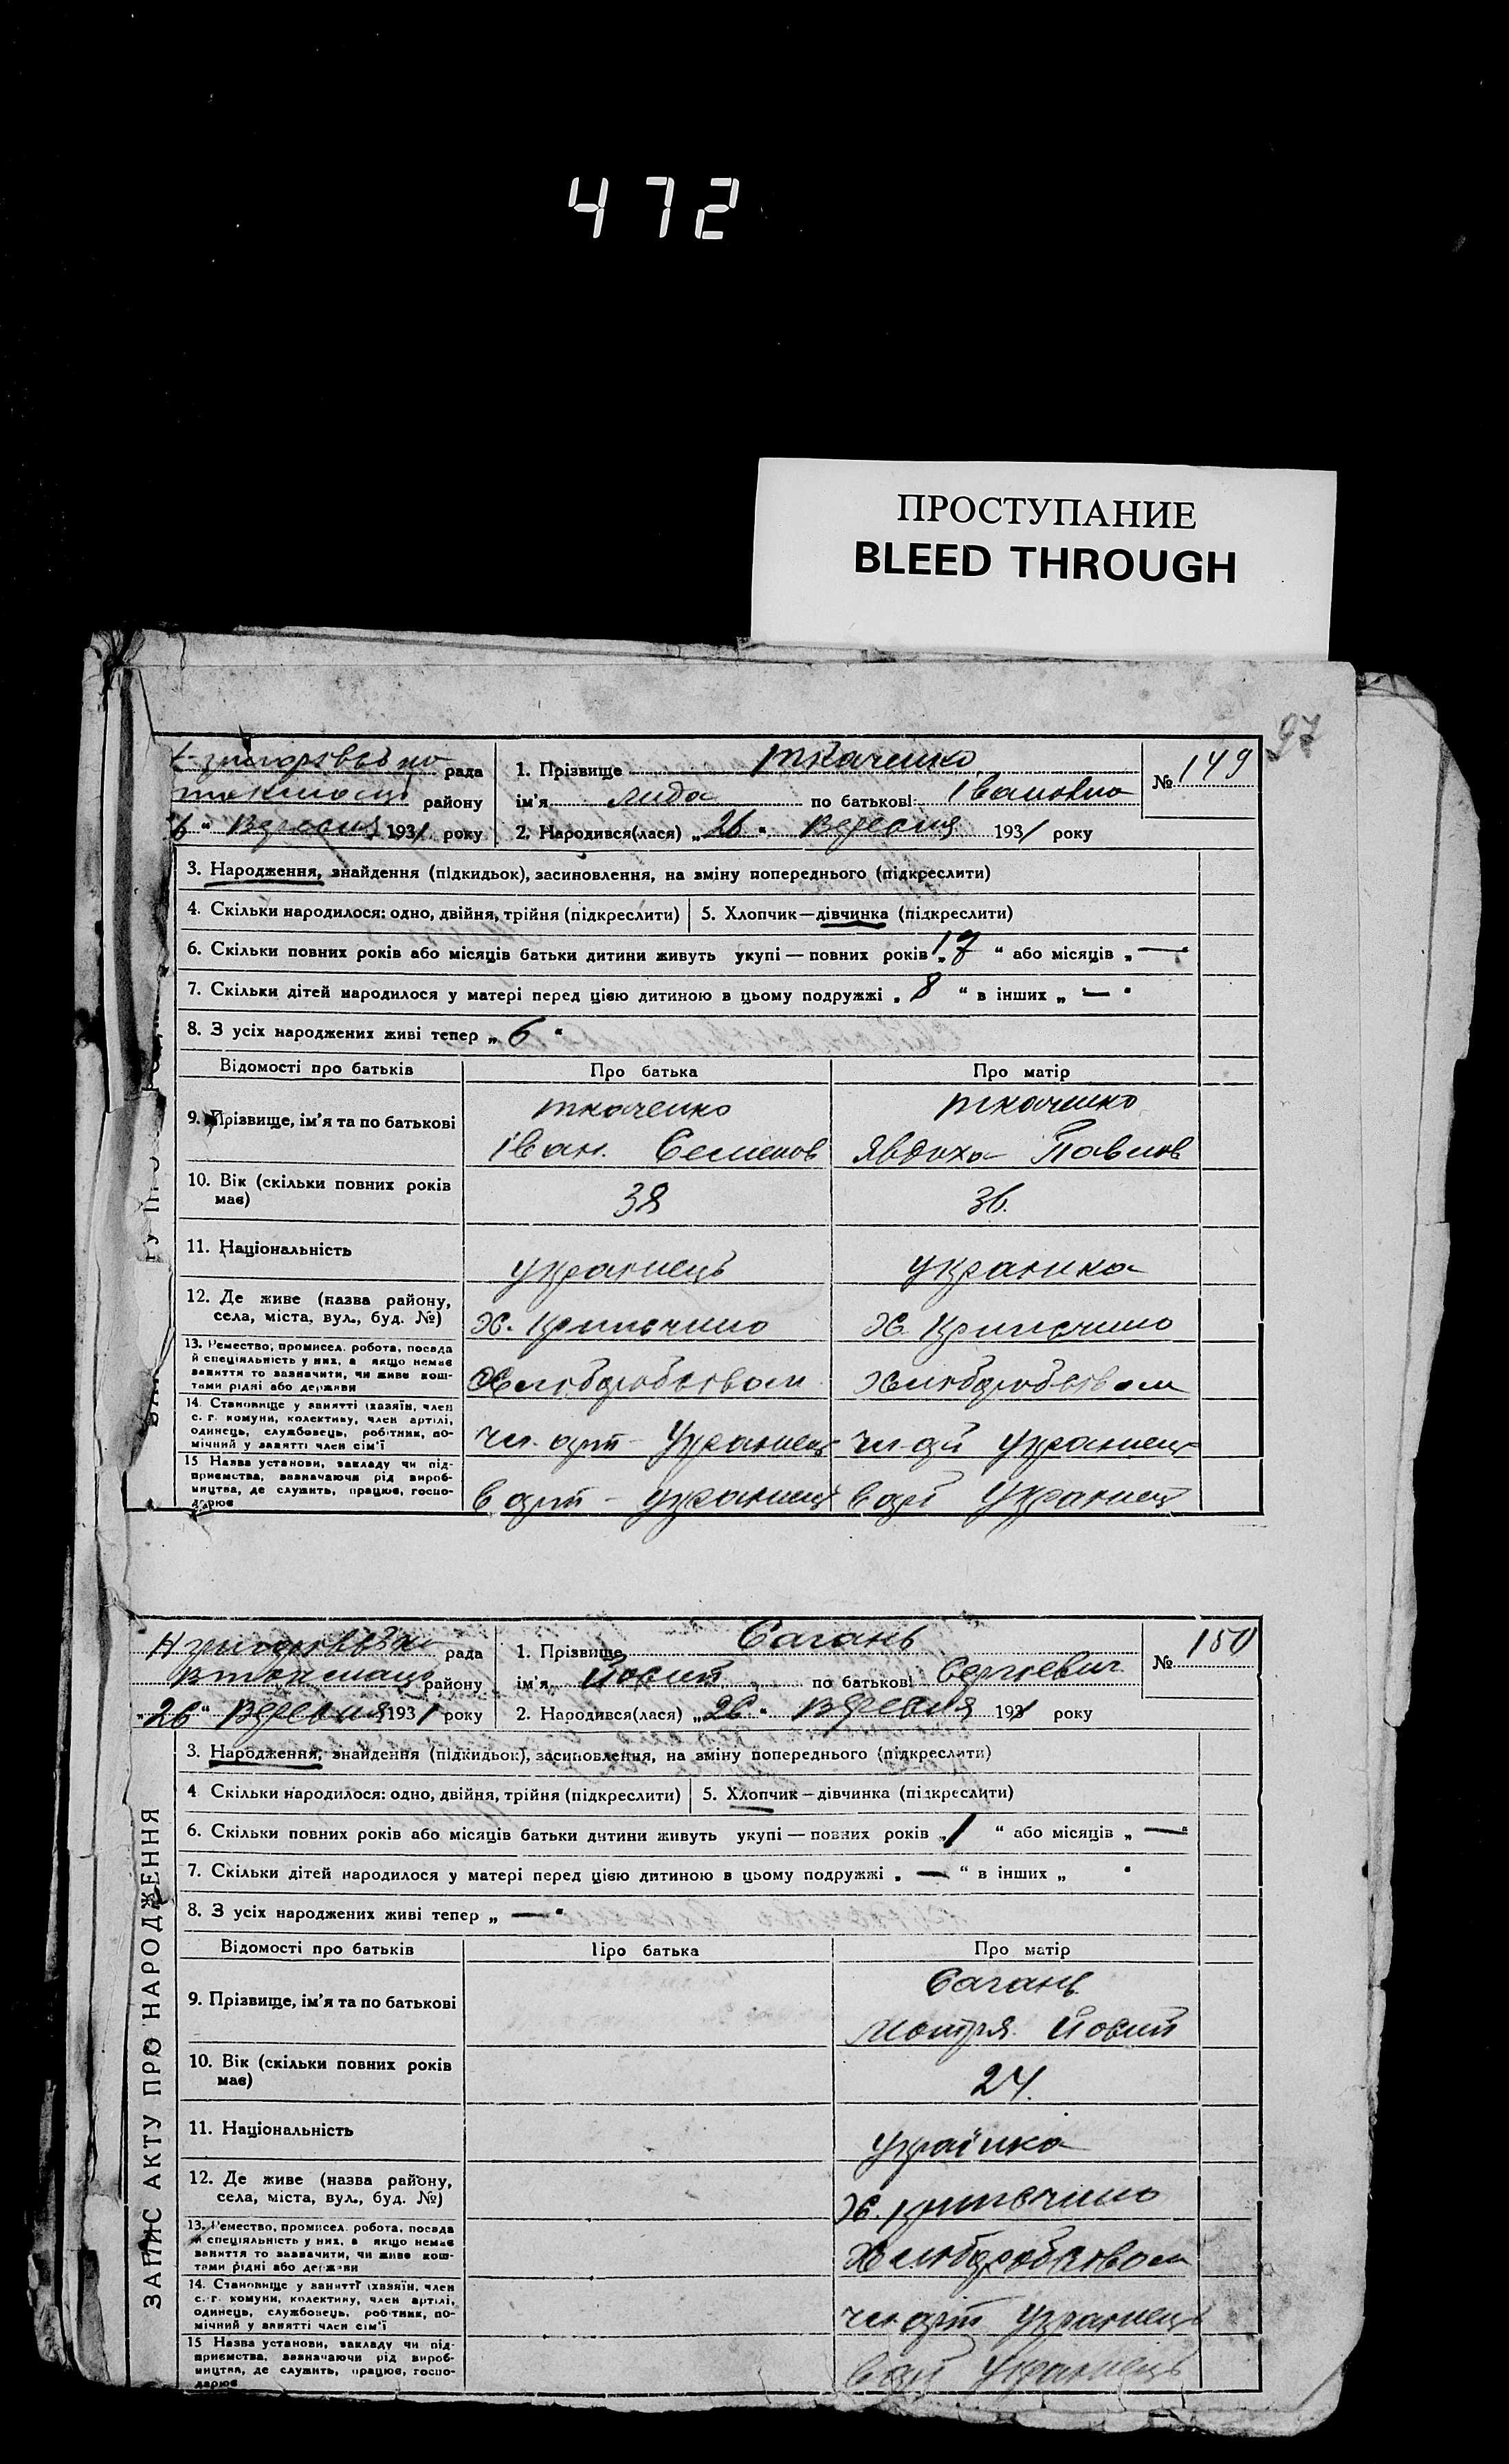 472
ПРОСТУПАНИЕ
BLEED THROUGH
97
рада
району
6 " Вересня 1931 року
1. Прізвище Ткаченко
ім'я Лида по батькові Івановна
2. Народився(лася) „ 26 " Вересня 1931 року
№ 149
3. Народження, знайдення (підкидьок), засиновлення, на зміну попереднього (підкреслити)
4. Скільки народилося: одно, двійня, трійня (підкреслити) 5. Хлопчик—дівчинка (підкреслити)
6. Скільки повних років або місяців батьки дитини живуть укупі — повних років „ 17 " або місяців „ — "
7. Скільки дітей народилося у матері перед цією дитиною в цьому подружжі „ 8 " в інших „ — "
8. З усіх народжених живі тепер „ 6 "
Відомості про батьків Про батька Про матір
9. Прізвище, ім'я та по батькові Ткаченко Ткаченко
Іван. Семенов Явдоха Павлов
10. Вік (скільки повних років має) 38 36.
11. Національність Украинець Украинка
12. Де живе (назва району,
села, міста, вул., буд. №) х. х.
13. Ремество, промисел. робота, посада
й спеціяльність у них, а якщо немає
заняття то зазначити, чи живе кош-
тами рідні або держави
Хлібробством Хлібробством
14. Становище у занятті (хазяїн, член
с. г. комуни, колективу, член артілі,
одинець, службовець, робітник, по-
мічний у занятті член сім'ї
чл. арт Украинець чл. Украинець
15 Назва установи, закладу чи під-
приємства, зазначаючи рід вироб-
ництва, де служить, працює, госпо-
дарює
в арт - Украинець в арт Украинець
рада
району
„ 26 " Вересня 1931 року
1. Прізвище Сагань
ім'я по батькові Сергієвич
2. Народився(лася) „ 26 " Вересня 1931 року
№ 150
ЗАПИС АКТУ ПРО НАРОДЖЕННЯ
3. Народження, знайдення (підкидьок), засиновлення, на зміну попереднього (підкреслити)
4 Скільки народилося: одно, двійня, трійня (підкреслити) 5. Хлопчик—дівчинка (підкреслити)
6. Скільки повних років або місяців батьки дитини живуть укупі — повних років „ 1 " або місяців „ — "
7. Скільки дітей народилося у матері перед цією дитиною в цьому подружжі „ — " в інших „ "
8. З усіх народжених живі тепер „ — "
Відомості про батьків Про батька Про матір
9. Прізвище, ім'я та по батькові Сагань
Мотря
10. Вік (скільки повних років має) 24.
11. Національність Українка
12. Де живе (назва району,
села, міста, вул., буд. №) х.
13. Ремество, промисел. робота, посада
й спеціяльність у них, а якщо немає
заняття то зазначити, чи живе кош-
тами рідні або держави
Хлібробством
14. Становище у занятті (хазяїн, член
с. г. комуни, колективу, член артілі,
одинець, службовець, робітник, по-
мічний у занятті член сім'ї
чл арт Украинець
15 Назва установи, закладу чи під-
приємства, зазначаючи рід вироб-
ництва, де служить, працює, госпо-
дарює
в арт Украинець